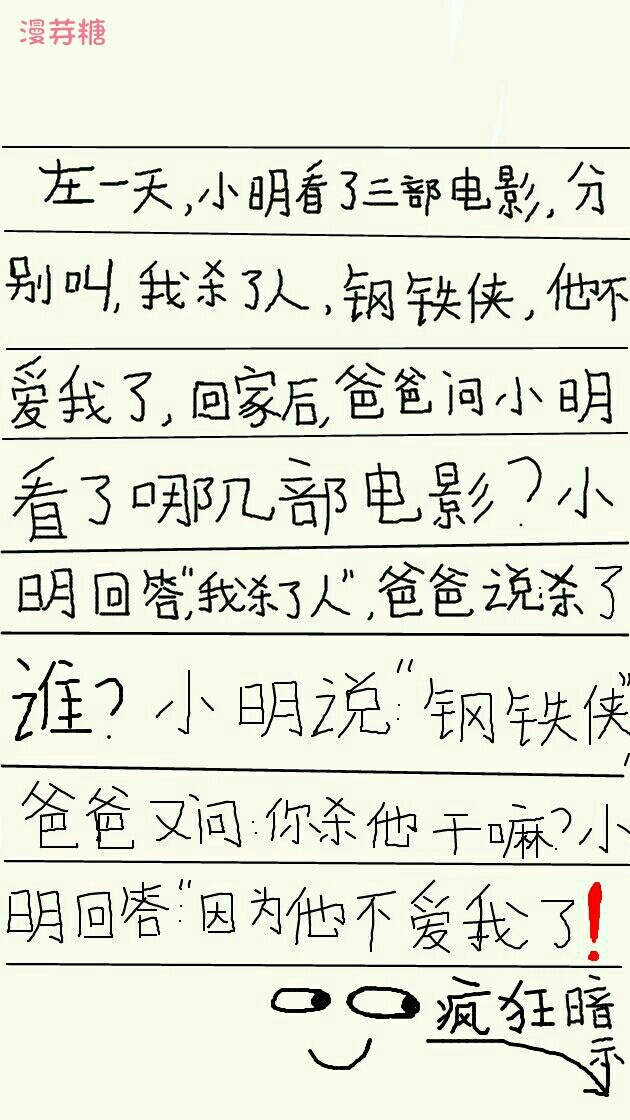 漫芽糖
在一天,小明看了三部电影,分
别叫,我杀了人,钢铁侠,他不
爱我了,回家后,爸爸问小明
看了哪几部电影?小
明回答"我杀了人",爸爸说:杀了
谁?小明说:"钢铁侠"
爸爸又问:你杀他干嘛?小
明回答:"因为他不爱我了!
疯狂暗
示